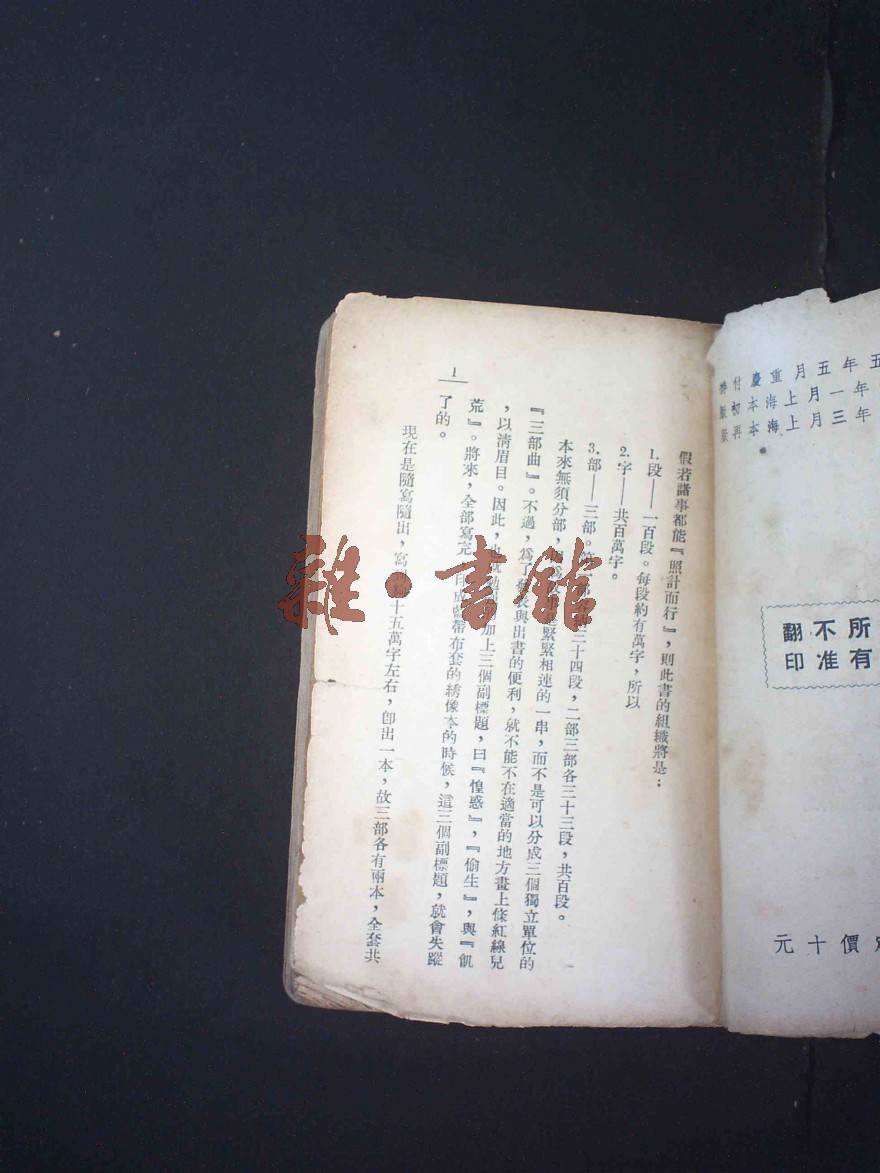 假若諸事都能『照計而行』，則此書的組織將是：
1. 段——一百段。每段約有萬字，所以
2. 字——共百萬字。
3. 部——三部。第一部容納三十四段，二部三部各三十三段，共百段。
本來無須分部，因為故事是緊緊相連的一串，而不是可以分成三個獨立單位的
『三部曲』。不過，爲了發表與出書的便利，就不能不在適當的地方畫上條紅線兒
，以清眉目。因此，也就加上三個副標題，曰『惶惑』，『偷生』，與『飢
荒』。將來，全部寫完，印成藍帶布套的綉像本的時候，這三個副標題，就會失蹤
了的。
現在是隨寫隨出，寫到十五萬字左右，卽出一本，故三部各有兩本，全套共
1
付慶重月五年五
初本海上月一年
再本海上月三年
所不翻
有准印
價十元
雜·書館